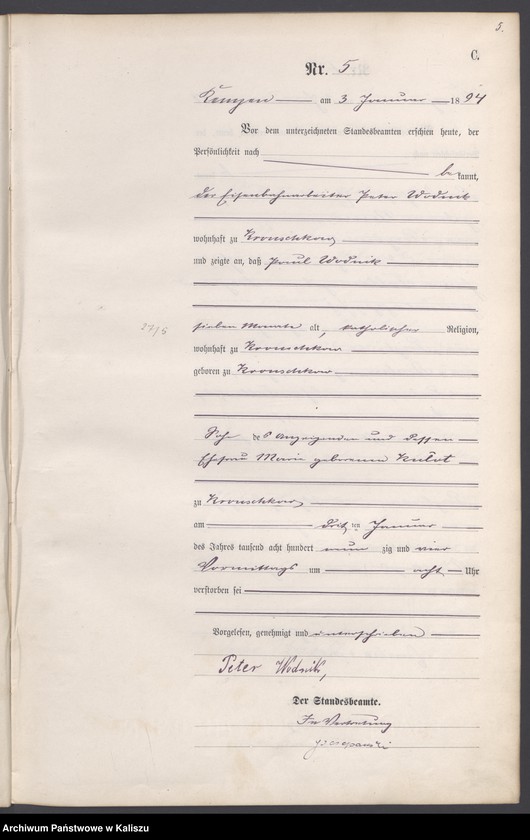 5.
C.
Nr. 5
am 3 Januar 1894
Vor dem unterzeichneten Standesbeamten erschien heute, der
Persönlichkeit nach
be kannt,
der Eisenbahnarbeiter Peter Wodnik
wohnhaft zu Kronschkow
und zeigte an, daß Paul Wodnik
27/5
sieben Monate alt, katholischer Religion,
wohnhaft zu Kronschkow
geboren zu Kronschkow
Sohn des Anzeigenden und dessen
Ehefrau Marie geborenen
zu Kronschkow
am dritten Januar
des Jahres tausend acht hundert neun zig und vier
Vormittags um acht Uhr
verstorben sei
Vorgelesen, genehmigt und unterschrieben
Peter Wodnik,
Der Standesbeamte.
In Vertretung
Archiwum Państwowe w Kaliszu